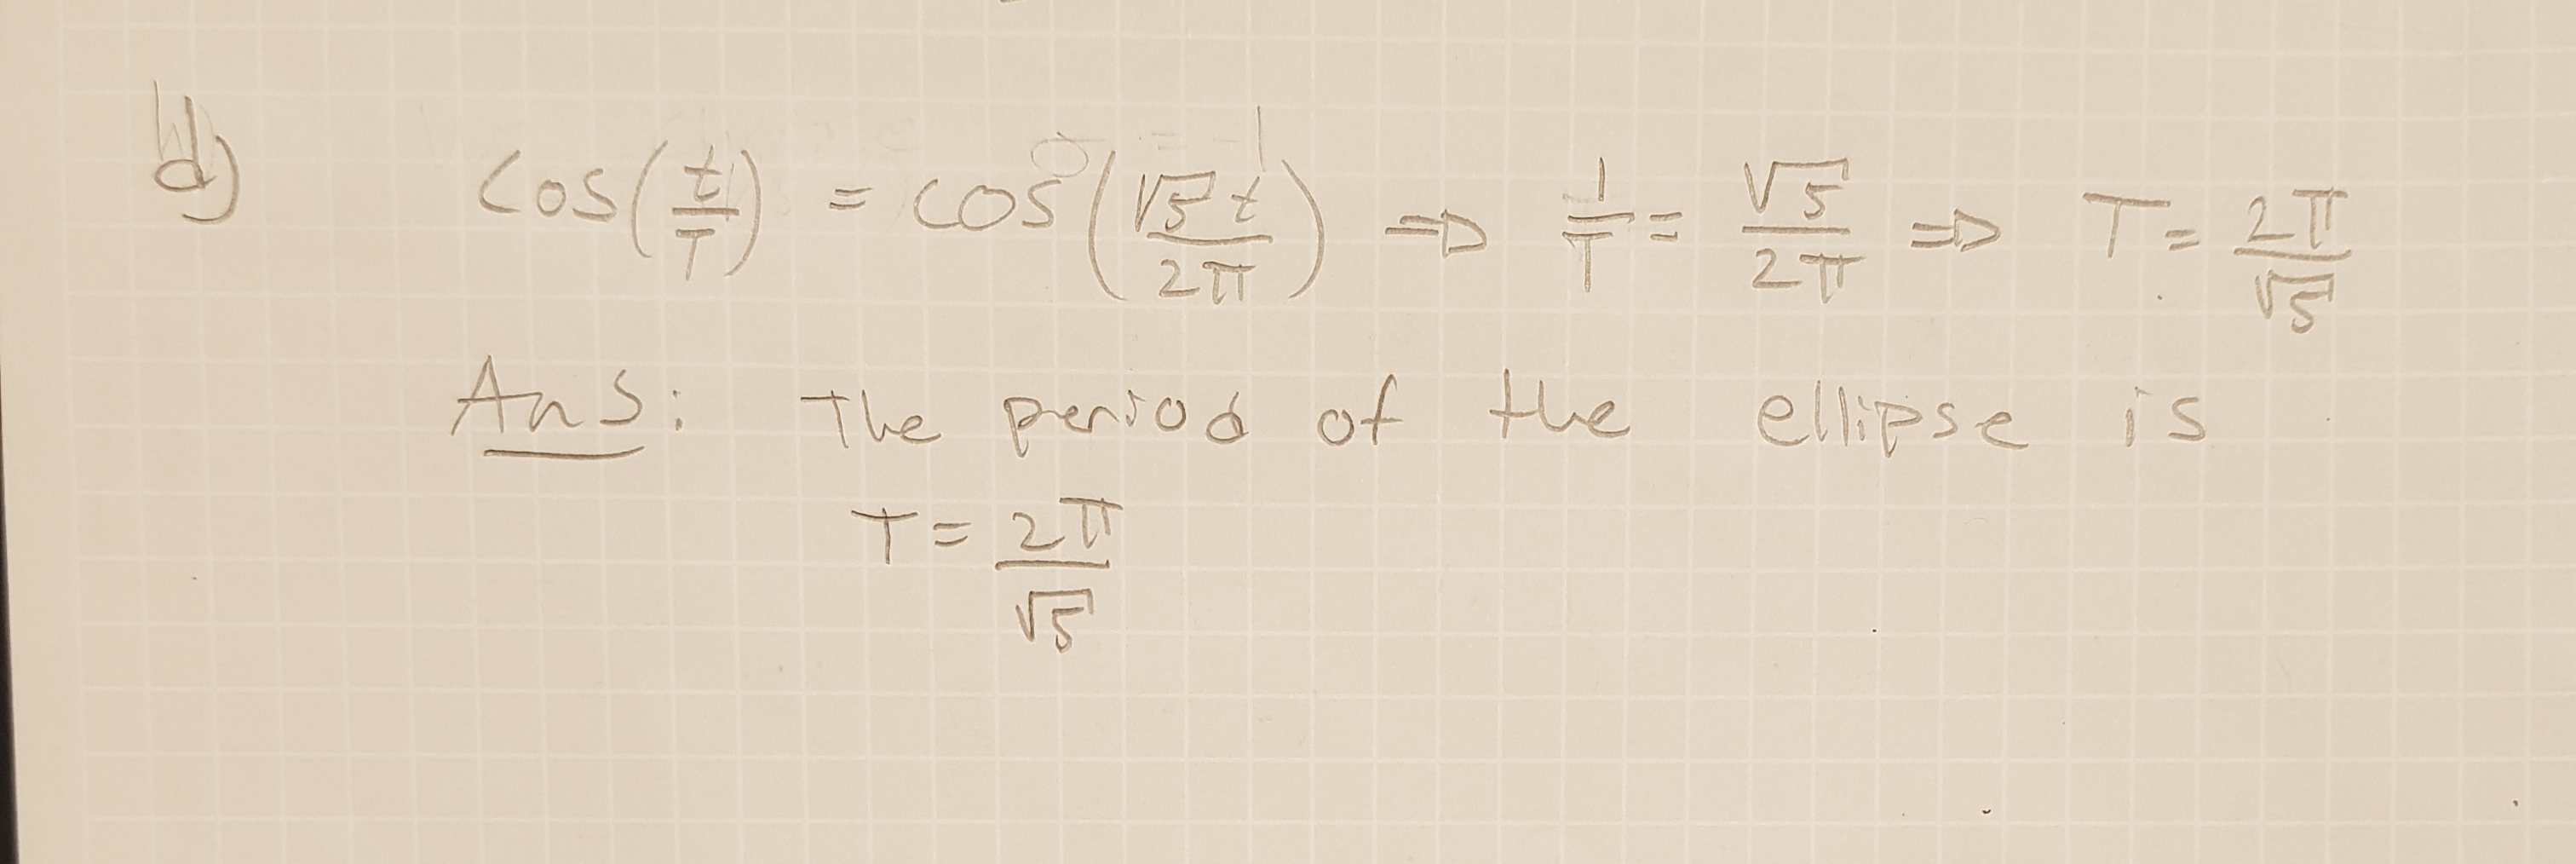 d) cos(t/T) = cos(√5 t/2π) ⇒ 1/T = √5/2π ⇒ T = 2π/√5
Ans: The period of the ellipse is
T = 2π/√5